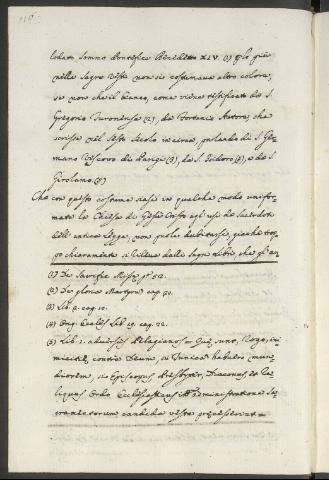 lodato Sommo Pontefice Benedetto XIV. (1) Che piu
nelle Sagre Vesti non si costumava altro colore,
se non che il bianco, come viene testificato da S.
Gregorio Turonense (2), da Fortunio Autore, che
scrisse nel Sesto Secolo in circa, parlando di S. Ger,
mano Vescovo di Parigi (3), da S. Isidoro (4), e da S.
Girolamo. (5)
Che con questo costume siasi in qualche modo unifor,
mata la Chiesa di Gesù Cristo agli usi de Sacerdoti
dell'antica Legge, non puole dubitarsi, giacchè trop,
po chiaramente si rileva dalle Sagre Lettre, che gl'an,
(1) De Sacrific. Missæ p. 52.
(2) De gloria Martyrum cap. 20.
(3) Lib. 2. cap. 10.
(4) Orig. Eccles. Lib. 19. cap. 22.
(5) Lib. 1. adversus Pelagianos = Quæ sunt, Rogo, in,
imicitiæ contra Deum, si tunicam habuero mun,
diorem, si Episcopus, Presbyter, Diaconus, et Re,
liquus Ordo Ecclesiasticus in administratione Sa,
cramentorum candida veste processerint =